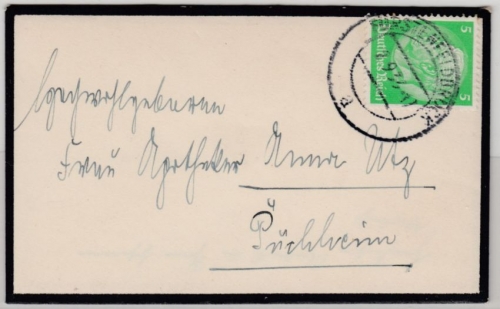 Hochwohlgeboren
Frau Apotheker Anna Utz
Puchheim
5 Deutsches Reich 5
FÜRSTENFELDBRUCK